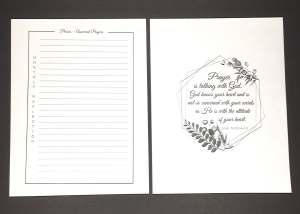 Praise + Answered Prayer
MONTHLY REFLECTION
Prayer
is talking with God.
God knows your heart and is
not so concerned with your words
as He is with the attitude
of your heart.